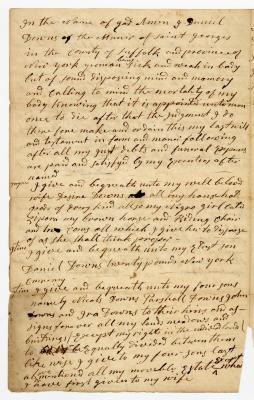 In the Name of god Amen I Daniel
Downs of the Manor of Saint Georges
in the County of Suffolk and province of
New york yeoman being Sick and weak in body
but of sound disposing mind and memory
and Calling to mind the mortality of my
body knowing that it is appointed unto men
once to Die after that the Judgment I do
therefore make and ordain this my last will
and testament in form and manner following
after all my Just debts and funeral Expences
are paid and satisfyd by my Executors after
named
I give and bequeath unto my well beloved
wife Downs all my household
goods of Every kind also my negro girl
my brown horse and Riding Chair
and two Cows all which I give her to dispose
of as she shall think proper
Item I give and bequeath unto my Eldest son
Daniel Downs twenty pounds New york
Currency
Item I give and bequeath unto my four sons
namely Downs Parshall Downs John
Downs and Ira Downs to their heirs and as-
signs forever all my lands meadows and
buildings Except my right in the undivided land
to be Equally divided between them
like wise I give to my four sons Last
all mentiond all my movable Estate Except what
I have first given to my wife